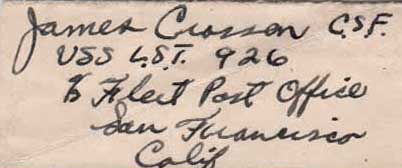 James Crossen C.S.F.
USS L.S.T. 926
℅ Fleet Post Office
San Francisco
Calif